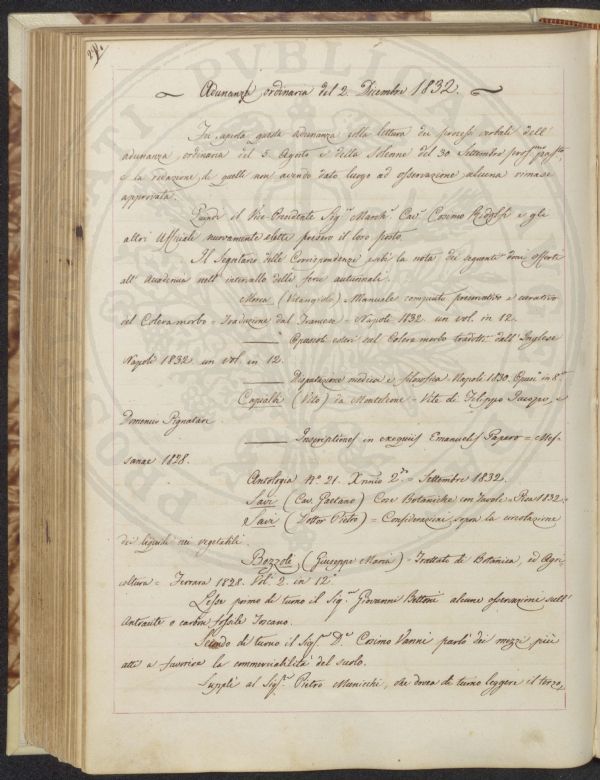 Adunanza ordinaria del 2. Dicembre 1832.
Fu aperta questa adunanza colla lettura dei processi verbali dell'
adunanza ordinaria del 5. Agosto e della solenne del 30 Settembre pross.mi pass.ti,
e la redazione di quelli non avendo dato luogo ad osservazione alcuna rimase
approvata.
Quindi il Vice-Presidente Sig.r March.e Cav. Cosimo Ridolfi e gli
altri Uffiziali nuovamente eletti presero il loro posto.
Il Segretario delle Corrispondenze lesse la nota dei seguenti doni offerti
all'Accademia nell'intervallo delle ferie autunnali.
Morea (Vitangiolo) = Manuale compiuto preservativo e curativo
del Colera morbo - Traduzione dal Francese - Napoli 1832 un vol. in 12.
——— Opuscoli esteri sul Colera morbo tradotti dall'Inglese
Napoli 1832 un vol. in 12.
——— Disputazione medica e filosofica Napoli 1830. Opusc. in 8.o
Capialbi (Vito) da Monteleone - Vite di Filippo Jacopo, e
Domenico Pignatari
——— Inscriptiones in exequiis Emanuelis Paparo = Mes-
sanae 1828.
Antologia N.o 21. Xnnio 2.do = Settembre 1832.
Savi (Cav. Gaetano) Cose Botaniche con Tavole - Pisa 1832.
Savi (Dottor Pietro) = Considerazioni sopra la circolazione
dei liquidi nei vegetabili.
Bozzoli (Giuseppe Maria) = Trattato di Botanica, ed Agri-
coltura = Ferrara 1828. Vol. 2. in 12.o
Lesse primo di turno il Sig.r Giovanni Bettoni alcune osservazioni sull'
Antracite o carbon fossile Toscano.
Secondo di turno il Sig.r D.r Cosimo Vanni parlò dei mezzi più
atti a favorire la commerciabilità del suolo.
Supplì al Sig.r Pietro Municchi, che dovea di turno leggere il terzo,